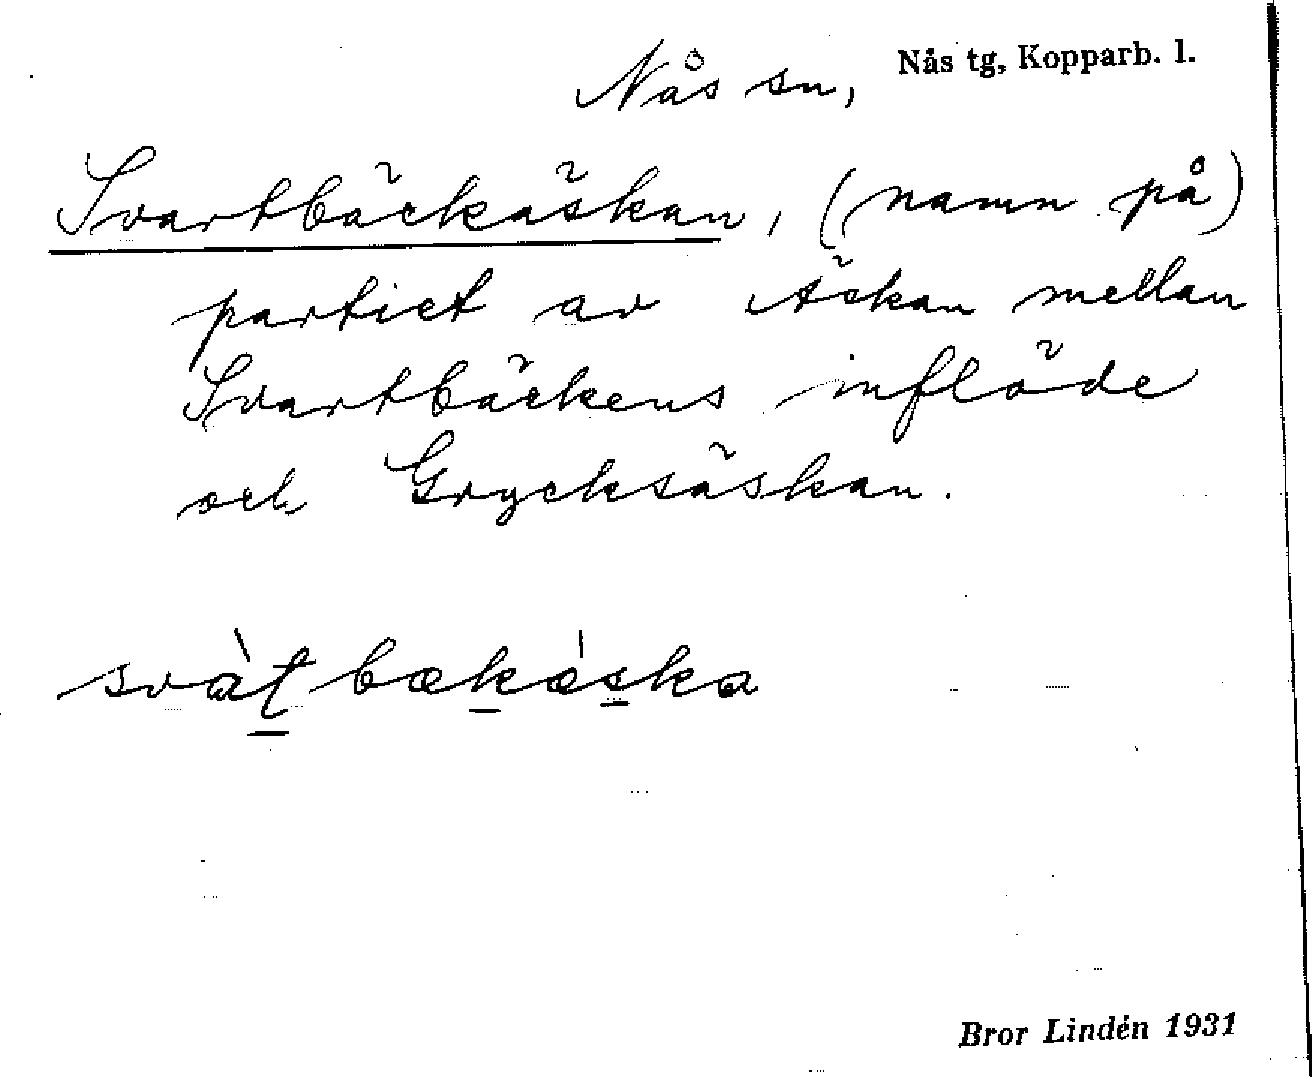 Nås sn, Nås tg, Kopparb. l.
Svartbäckäskan, (namn på)
partiet av Äskan mellan
Svartbäckens inflöde
och Grycksäskan.
svàt bækǽska
Bror Lindén 1931